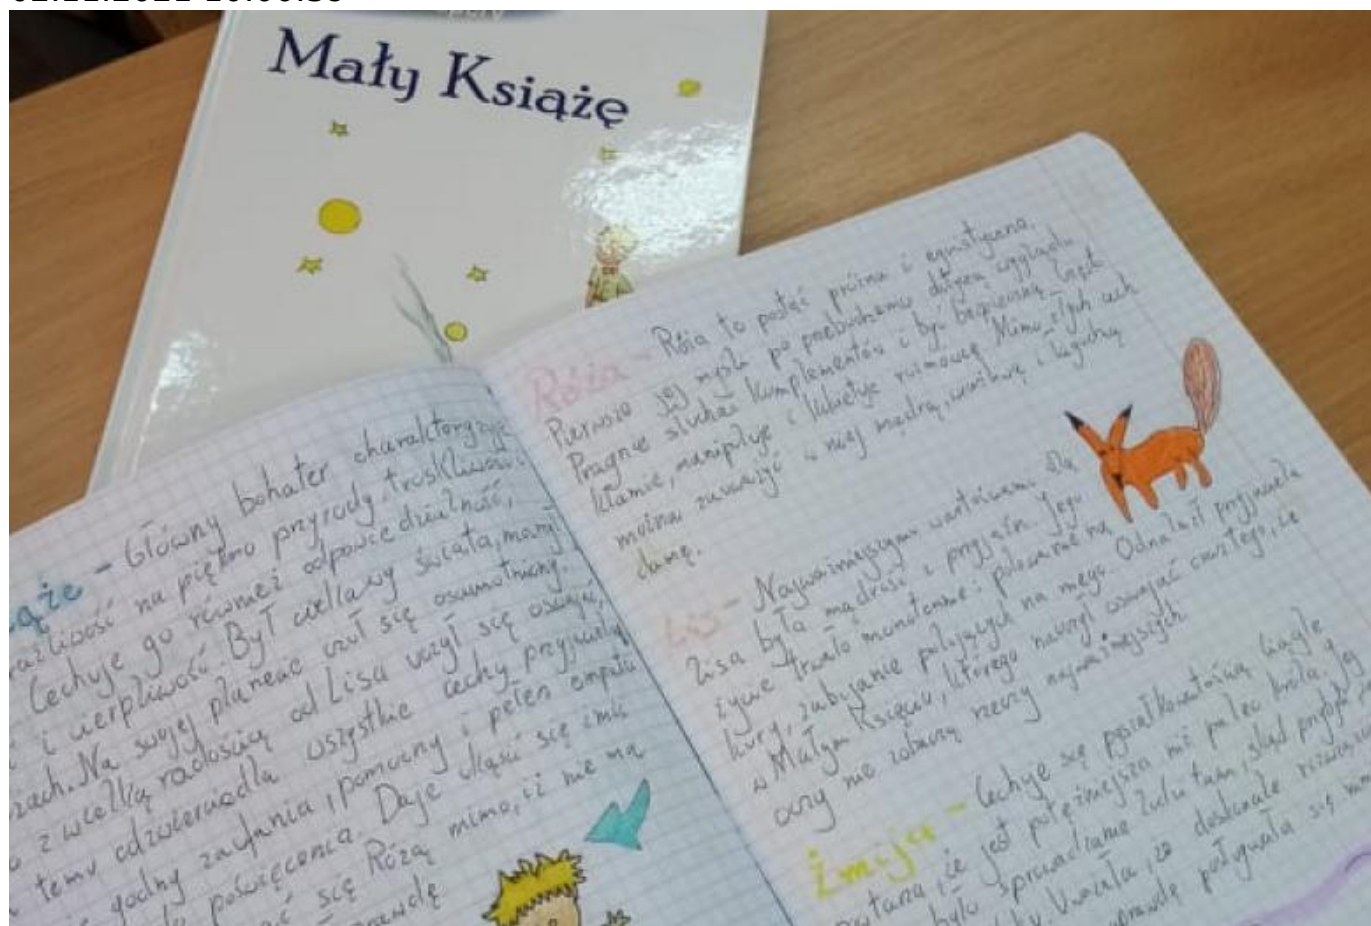 02.11.2021 10:00:38
Mały Książę
ążę – Główny bohater charakteryzuje
na piękno przyrody, troskliwość
Cechuje go również odpowiedzialność,
i cierpliwość. Był ciekawy świata,
zach. Na swojej planecie czuł się osamotniony.
z wielką radością od Lisa uczył się
temu odzwierciedla wszystkie cechy przyjaciela
godny zaufania, pomocny i pełen empatii
poświęcenia. Daje się
się Różą mimo, iż nie ma
Róża – Róża to postać próżna i egoistyczna.
Pierwsza jej myśl po przebudzeniu dotyczy wyglądu
Pragnie słuchać komplementów i być bezpieczną.
kłamie, manipuluje i rozmowę Mimo złych cech
można zauważyć w niej mądrą, wrażliwą i
damę.
Lis – Najważniejszymi wartościami dla
Lisa była mądrość i przyjaźń. Jego
życie trwało monotonnie: polowanie na
kury, zabijanie polujących na niego. Odnalazł przyjaciela
w Małym Księciu, którego nauczył oswajać oraz tego, że
oczy nie zobaczą rzeczy najważniejszych.
Żmija – Cechuje się ciągle
że jest potężniejsza niż palec króla. Jej
było sprowadzanie ludzi tam, skąd
że doskonale
posługiwała się